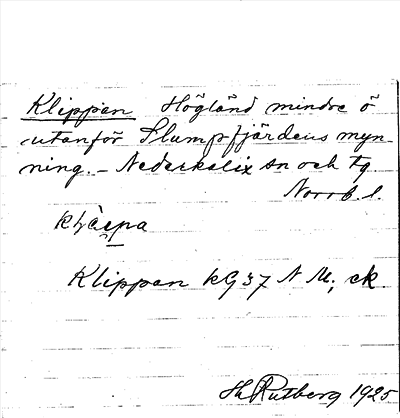 Klippan Högländ mindre ö
utanför Slumpfjärdens myn
ning. - Nederkalix sn och tg
Norrb. l.
Klippan kG 37 N M; ek
Hj Rutberg 1925